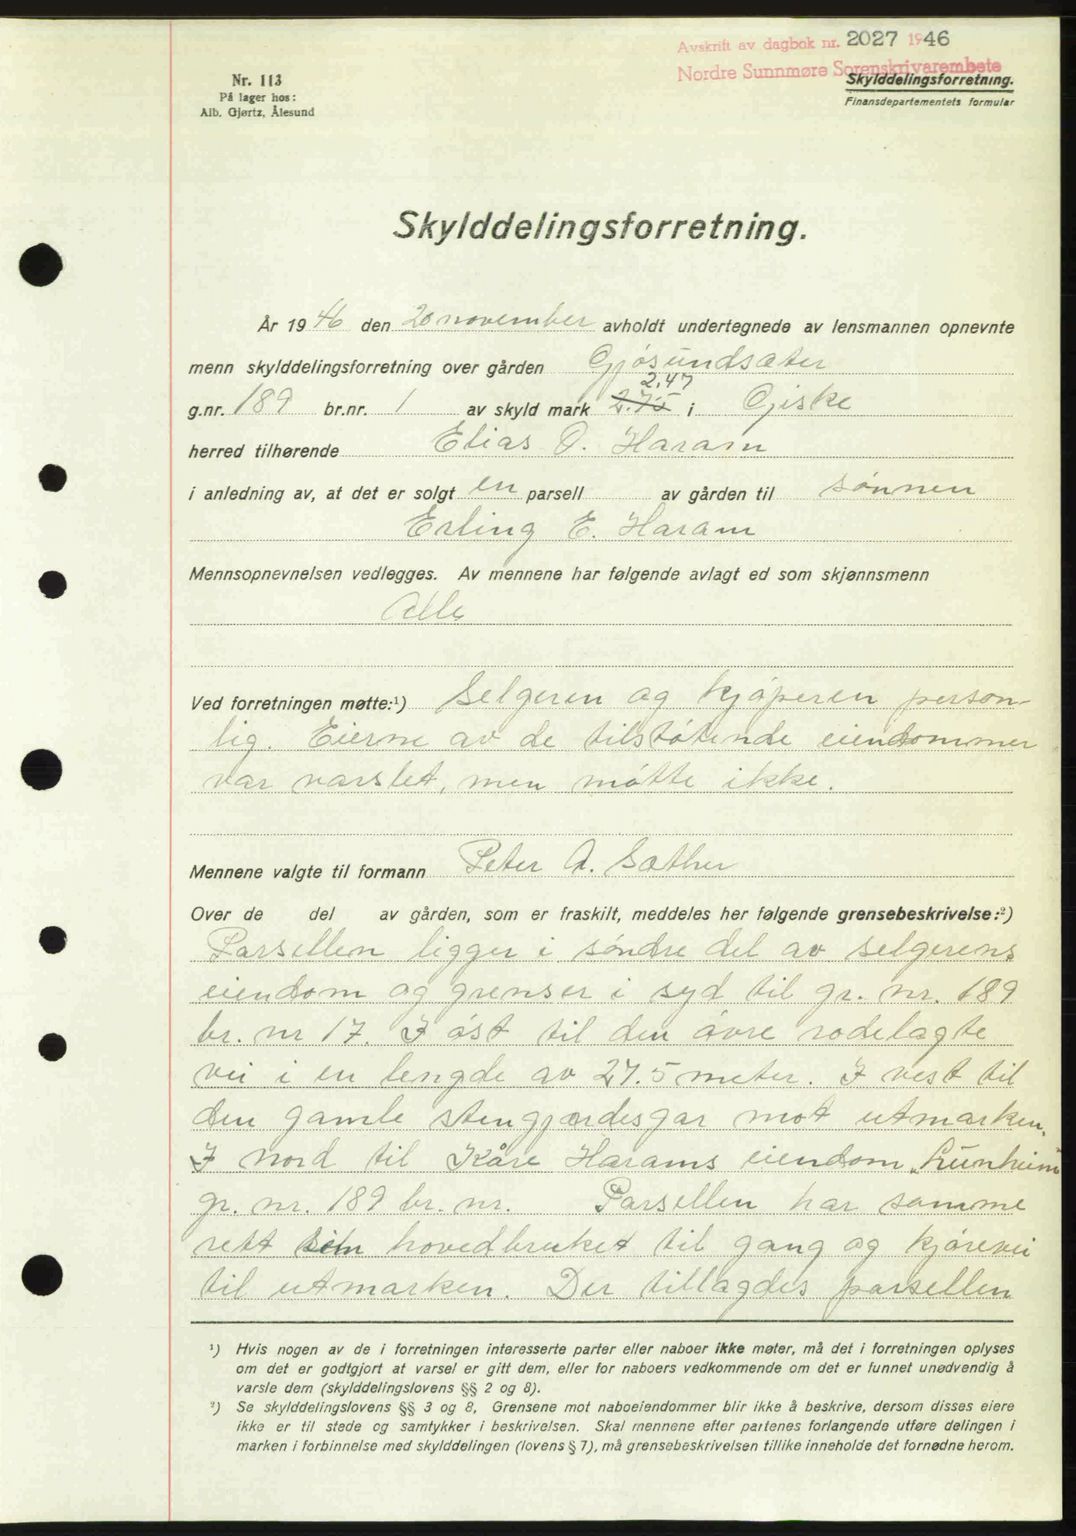 Avskrift av dagbok nr. 2027 1946
Nordre Sunnmøre Sorenskrivarembete
Nr. 113
På lager hos:
Alb. Gjørtz, Ålesund
Skylddelingsforretning.
Finansdepartementets formular
Skylddelingsforretning.
År 1946 den 20 november avholdt undertegnede av lensmannen opnevnte
menn skylddelingsforretning over gården Gjøsundsæter
2,47
g.nr. 189 br.nr. 1 av skyld mark 2.75 i Giske
herred tilhørende Elias O. Haram
i anledning av, at det er solgt en parsell av gården til sønnen
Erling E. Haram
Mennsopnevnelsen vedlegges. Av mennene har følgende avlagt ed som skjønnsmenn
Alle
Ved forretningen møtte:¹) Selgeren og kjøperen person-
lig. Eierne av de tilstøtende eiendommer
var varslet, men møtte ikke.
Mennene valgte til formann Peter A. Sæther
Over de del av gården, som er fraskilt, meddeles her følgende grensebeskrivelse:²)
Parsellen ligger i søndre del av selgerens
eiendom og grenser i syd til gr. nr. 189
br. nr 17. I øst til den øvre rodelagte
vei i en lengde av 27.5 meter. I vest til
den gamle stengjærdesgar mot utmarken.
I nord til Kåre Harams eiendom „Lunheim
gr. nr. 189 br. nr. Parsellen har samme
rett som hovedbruket til gang og kjørevei
til utmarken. Der tillagdes parsellen
¹) Hvis nogen av de i forretningen interesserte parter eller naboer ikke møter, må det i forretningen oplyses
om det er godtgjort at varsel er gitt dem, eller for naboers vedkommende om det er funnet unødvendig å
varsle dem (skylddelingslovens §§ 2 og 8).
²) Se skylddelingslovens §§ 3 og 8. Grensene mot naboeiendommer blir ikke å beskrive, dersom disses eiere
ikke er til stede og samtykker i beskrivelsen. Skal mennene efter partenes forlangende utføre delingen i
marken i forbinnelse med skylddelingen (lovens § 7), må grensebeskrivelsen tillike inneholde det fornødne herom.